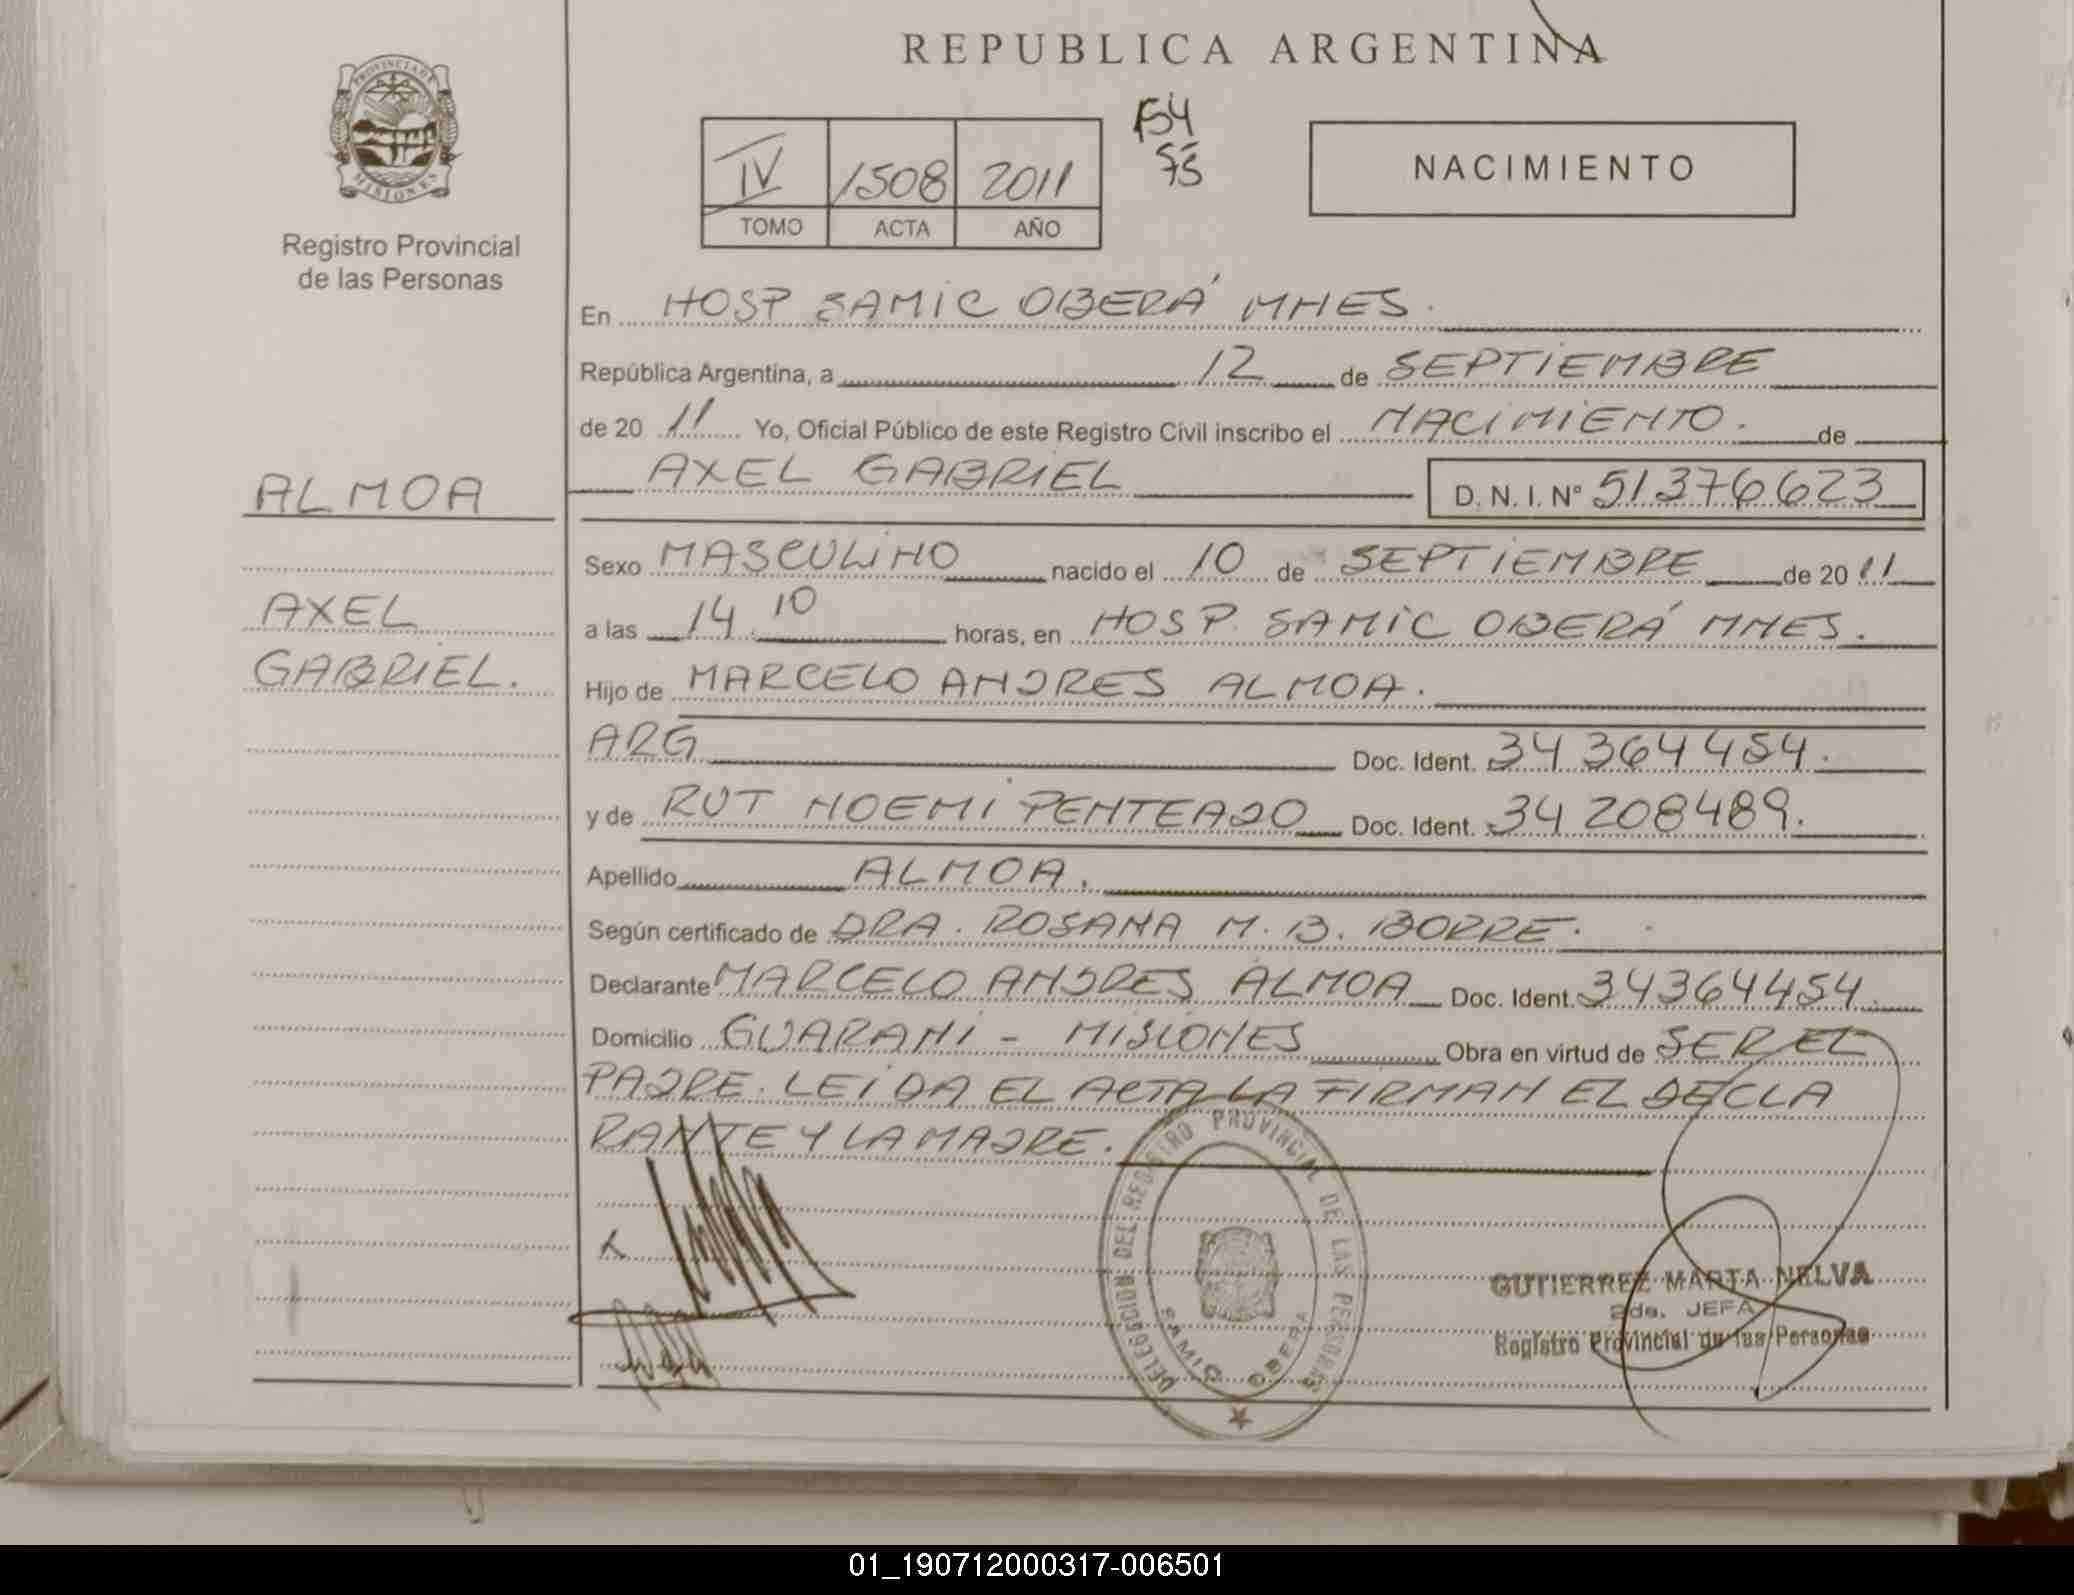 REPUBLICA ARGENTINA
PROVINCIA DE
MISIONES
Registro Provincial
de las Personas
IV 1508 2011
TOMO ACTA AÑO
154
75
NACIMIENTO
En HOSP SAMIC OBERÁ MNES.
República Argentina, a 12 de SEPTIEMBRE
de 20 11 Yo, Oficial Público de este Registro Civil inscribo el NACIMIENTO. de
AXEL GABRIEL D. N. I. N° 51376623
ALMOA
AXEL
GABRIEL.
Sexo MASCULINO nacido el 10 de SEPTIEMBRE de 20 11
a las 14 10 horas, en HOSP. SAMIC OBERÁ MNES.
Hijo de MARCELO ANDRES ALMOA.
ARG Doc. Ident. 34 364 454.
y de RUT NOEMI PENTEADO Doc. Ident. 34 208489.
Apellido ALMOA.
Según certificado de DRA. ROSANA M. B. BORRE.
Declarante MARCELO ANDRES ALMOA Doc. Ident. 34364454.
Domicilio GUARANI - MISIONES Obra en virtud de SER EL
PADRE. LEIDA EL ACTA LA FIRMAN EL DECLA
RANTE Y LA MADRE.
DELEGACION DEL REGISTRO PROVINCIAL DE LAS PERSONAS
SAMIC OBERA
GUTIERREZ MARTA NELVA
2da. JEFA
Registro Provincial de las Personas
01_190712000317-006501